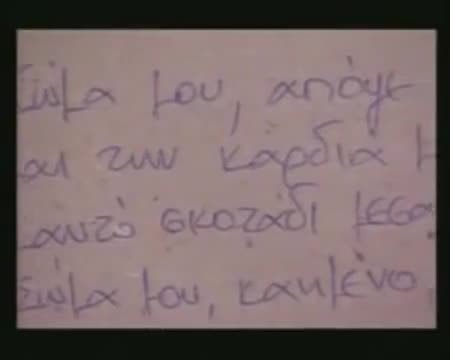 Σώμα μου, απόψε
αι την καρδιά μ
αυτό σκοτάδι μέσα
Σώμα μου, καημένο